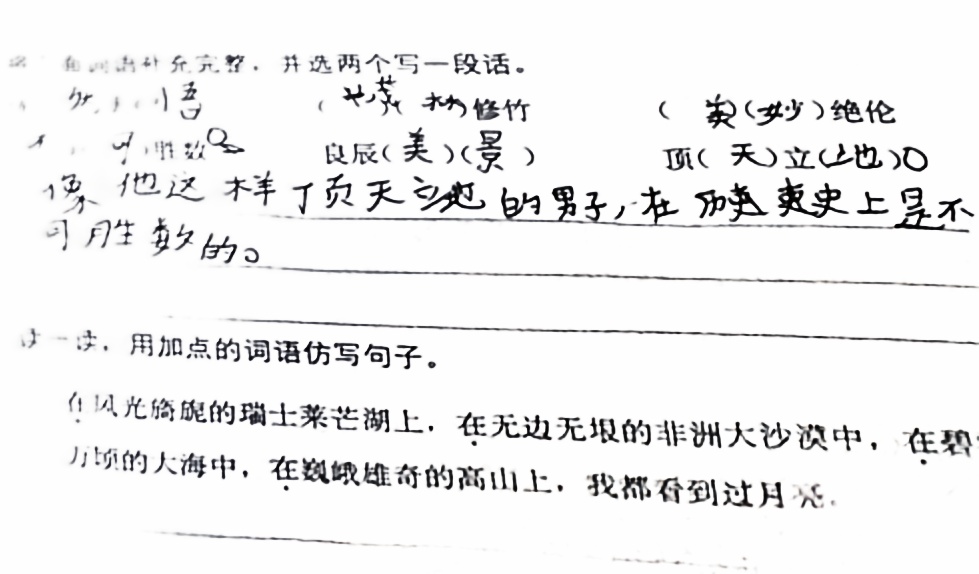 补充完整，并选两个写一段话。
悟 （茂林）修竹 （美）（妙）绝伦
可胜数 良辰（美）（景） 顶（天）立（地）
像他这样顶天立地的男子，在历史上是不
可胜数的。
读一读，用加点的词语仿写句子。
在风光旖旎的瑞士莱芒湖上，在无边无垠的非洲大沙漠中，在碧
万顷的大海中，在巍峨雄奇的高山上，我都看到过月亮.